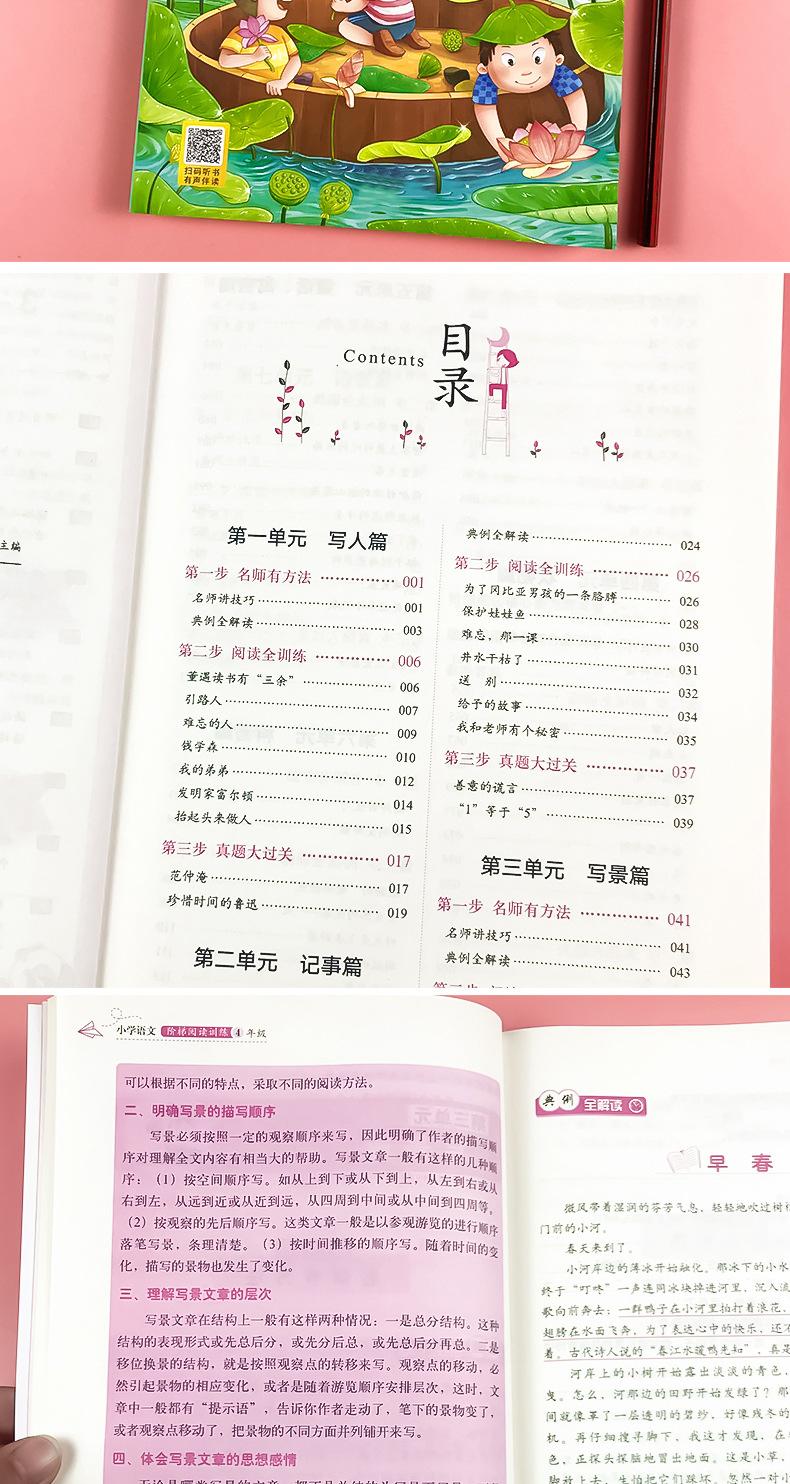 扫码听书
有声伴读
主编
Contents
目录
第一单元 写人篇
第一步 名师有方法 …………… 001
名师讲技巧 …………… 001
典例全解读 …………… 003
第二步 阅读全训练 …………… 006
董遇读书有“三余” …………… 006
引路人 …………… 007
难忘的人 …………… 009
钱学森 …………… 010
我的弟弟 …………… 012
发明家富尔顿 …………… 014
抬起头来做人 …………… 015
第三步 真题大过关 …………… 017
范仲淹 …………… 017
珍惜时间的鲁迅 …………… 019
第二单元 记事篇
典例全解读 …………… 024
第二步 阅读全训练 …………… 026
为了冈比亚男孩的一条胳膊 …………… 026
保护娃娃鱼 …………… 028
难忘，那一课 …………… 030
井水干枯了 …………… 031
送 别 …………… 032
给予的故事 …………… 034
我和老师有个秘密 …………… 035
第三步 真题大过关 …………… 037
善意的谎言 …………… 037
“1”等于“5” …………… 039
第三单元 写景篇
第一步 名师有方法 …………… 041
名师讲技巧 …………… 041
典例全解读 …………… 043
小学语文 阶梯阅读训练 4 年级
可以根据不同的特点，采取不同的阅读方法。
二、明确写景的描写顺序
写景必须按照一定的观察顺序来写，因此明确了作者的描写顺
序对理解全文内容有相当大的帮助。写景文章一般有这样的几种顺
序：（1）按空间顺序写。如从上到下或从下到上，从左到右或从
右到左，从远到近或从近到远，从四周到中间或从中间到四周等。
（2）按观察的先后顺序写。这类文章一般是以参观游览的进行顺序
落笔写景，条理清楚。（3）按时间推移的顺序写。随着时间的变
化，描写的景物也发生了变化。
三、理解写景文章的层次
写景文章在结构上一般有这样两种情况：一是总分结构。这种
结构的表现形式或先总后分，或先分后总，或先总后分再总。二是
移位换景的结构，就是按照观察点的转移来写。观察点的移动，必
然引起景物的相应变化，或者是随着游览顺序安排层次，这时，文
章中一般都有“提示语”，告诉你作者走动了，笔下的景物变了，
或者观察点移动了，把景物的不同方面并列铺开来写。
四、体会写景文章的思想感情
典例 全解读
早 春
微风带着湿润的芬芳气息，轻轻地吹过树梢
门前的小河。
春天来到了。
小河岸边的薄冰开始融化。那冰下的小水
终于“叮咚”一声连同冰块掉进河里，沉入流
歌向前奔去；一群鸭子在小河里拍打着浪花，
翅膀在水面飞奔，为了表达心中的快乐，还不
着。古代诗人说的“春江水暖鸭先知”，真是
河岸上的小树开始露出淡淡的青色，
曳。怎么，河那边的田野开始发绿了？那
间就像罩了一层透明的碧纱，好像残冬的
机。再仔细搜寻脚下，我这才发现，在
色，正探头探脑地冒出地面。这是小草，